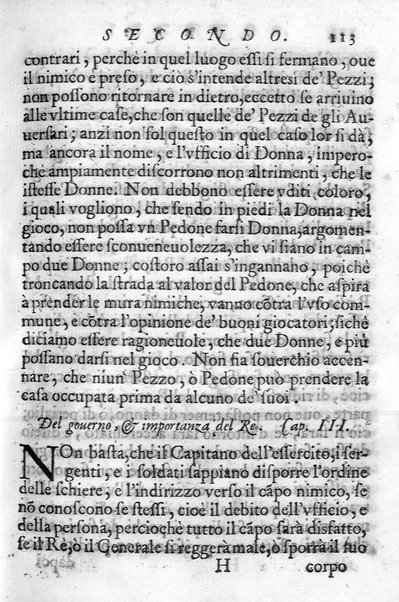 SECONDO. 113
contrari, perchè in quel luogo essi si fermano, oue
il nimico è preso, e ciò s'intende altresi de' Pezzi;
non possono ritornare in dietro, eccetto se arriuino
alle vltime case, che son quelle de' Pezzi de gli Au-
uersari; anzi non sol questo in quel caso lor si dà,
ma ancora il nome, e l'vfficio di Donna, impero-
che ampiamente discorrono non altrimenti, che le
istesse Donne. Non debbono essere vditi coloro,
i quali vogliono, che sendo in piedi la Donna nel
gioco, non possa vn Pedone farsi Donna, argomen-
tando essere sconueneuolezza, che vi siano in cam-
po due Donne; costoro assai s'ingannano, poichè
troncando la strada al valor del Pedone, che aspira
à prender le mura nimiche, vanno cõtra l'vso com-
mune, e cõtra l'opinione de' buoni giocatori; sichè
diciamo essere ragioneuole, che due Donne, e più
possano darsi nel gioco. Non fia souerchio accen-
nare, che niun Pezzo, ò Pedone può prendere la
casa occupata prima da alcuno de' suoi.
Del gouerno, & importanza del Re. Cap. III.
NOn basta, che il Capitano dell'essercito, i ser-
genti, e i soldati sappiano disporre l'ordine
delle schiere, e l'indirizzo verso il cãpo nimico, se
nõ conoscono se stessi, cioè il debito dell'vfficio, e
della persona, percioche tutto il cãpo sarà disfatto,
se il Re, ò il Generale si reggerà male, ò sporrà il suo
H corpo